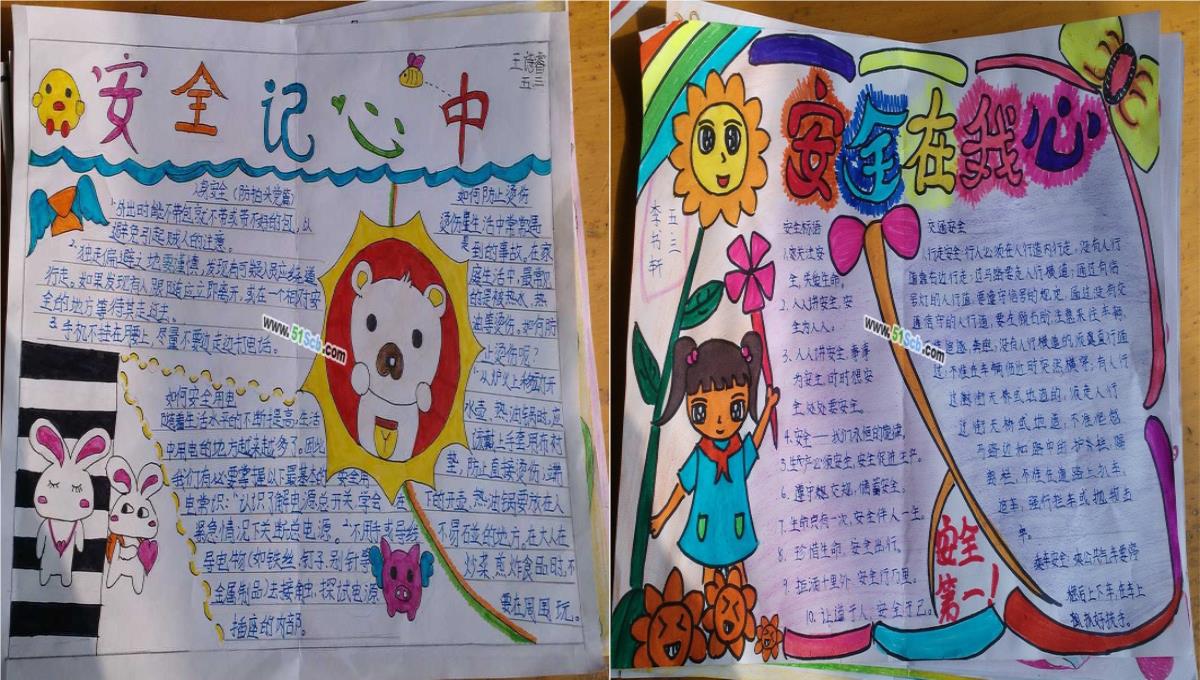 安全记心中
王诗睿
五三
人身安全(防拍米党篇)
1.外出时能不带包就不带或带不好的包,以
避免引起贼人的注意。
2.独走偏避之地要谨慎,发现有可疑人员应终止通
行走。如果发现有人跟随应立即离开,或在一个相对安
全的地方等待其走过去。
3.手机不挂在腰上,尽量不要边走边打电话。
如何安全用电
随着生活水平的不断提高,生活
中用电的地方越来越多了。因此
我们有必要掌握以下最基本的安全用
电常识:1.认识了解电源总开关,学会在
紧急情况下关断总电源。2.不用手或导线
导电物(如铁丝、钉子、别针等
金属制品)去接触、探试电源
插座的内部。
如何防止烫伤
烫伤是生活中常常遇
是到的事故。在家
庭生活中,最常见
的是被热水、热
油等烫伤。如何防
止烫伤呢?
1.从炉火上移动开
水壶、热油锅时,应
该戴上手套用布衬
垫,防止直接烫伤;端
下的开壶、热油锅要放在人
不易碰的地方。在大人在
炒菜、煎炸食品时,不
要在周围玩。
www.51Scb.com
安全在我心
五:三
李书轩
安全标语
1.寥天注安
全,失贻生命。
2.人人讲安全,安
全为人人。
3.人人讲安全,事事
为安全,时时想安
全,处处要安全。
4.安全——我们永恒的旋律。
5.生产必须安全,安全促进生产。
6.遵守规交规,储蓄安全。
7.生命只有一次,安全伴人一生。
8.珍惜生命,安全出行。
9.拒酒十里外,安全行万里。
10.让道于人,安全于己。
交通安全
行走安全:行人必须在人行道内行走,没有人行
道靠右边行走;过马路要走人行横道;通过有信
号灯的人行道,要遵守信号的规定,通过没有交
通信号的人行道,要左顾右盼,注意来往车辆,
追逐、奔跑;没有人行横道的,须直行通
过,不准在车辆临近时突然横穿;有人行
过街天桥或地道的,须走人行
过街天桥或地道;不准爬越
马路边和路中的护栏、隔
离栏,不准在道路上扒车、
追车、强行拦车或抛物击
车。
乘车安全:乘公共汽车要停
稳后上下车,在车上
抓扶好扶手。
安全
第一!
www.51Scb.com